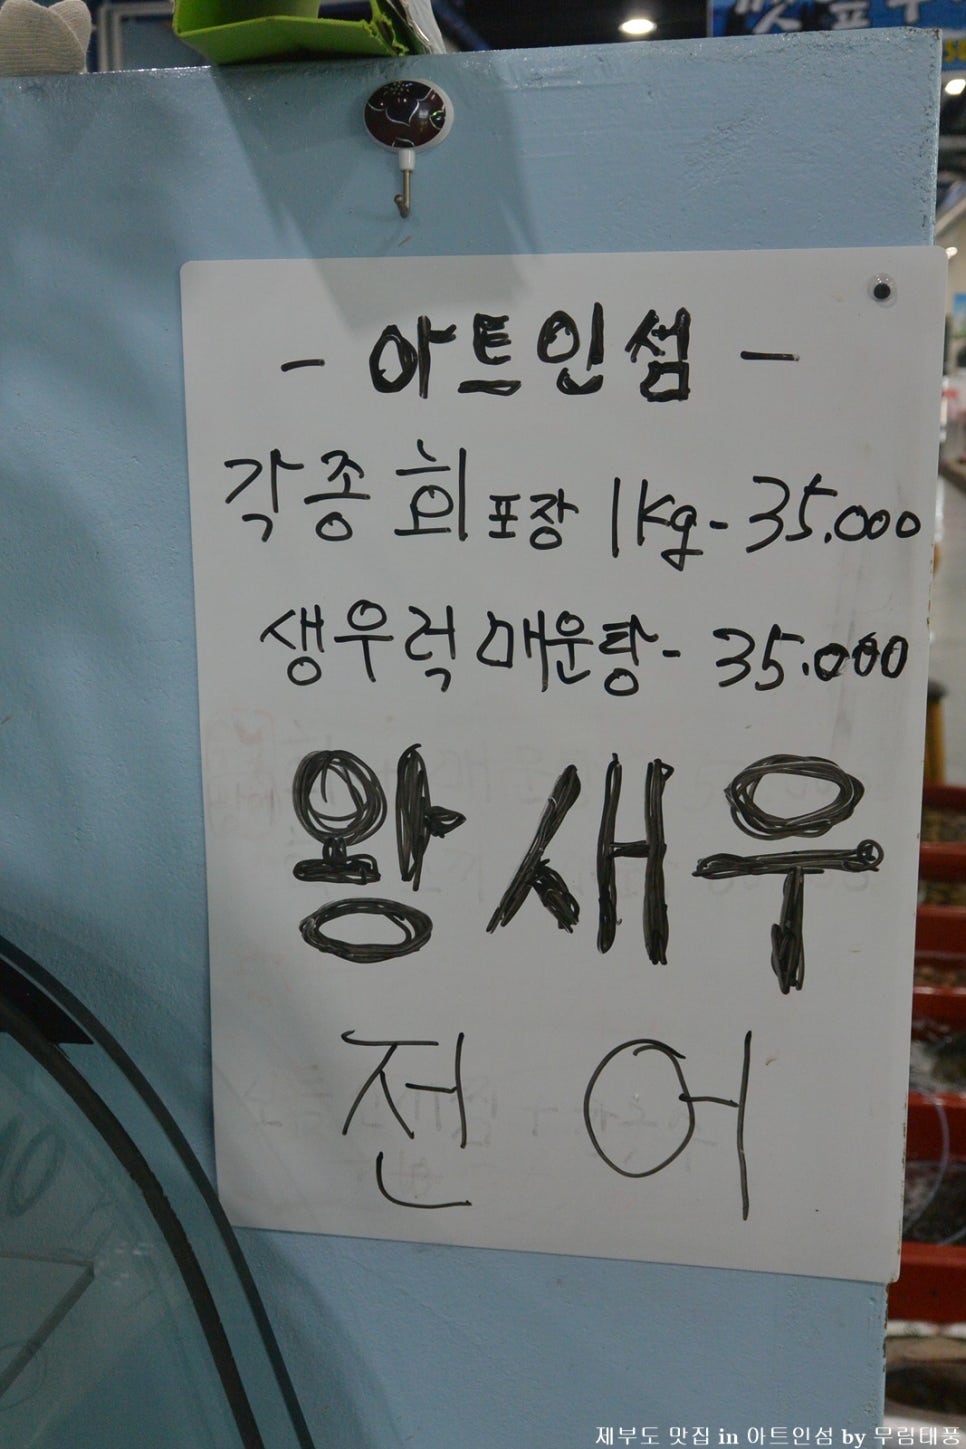 - 아트인섬 -
각종 회 포장 1kg - 35.000
생우럭 매운탕 - 35.000
왕새우
전어
제부도 맛집 in 아트인섬 by 무림태풍